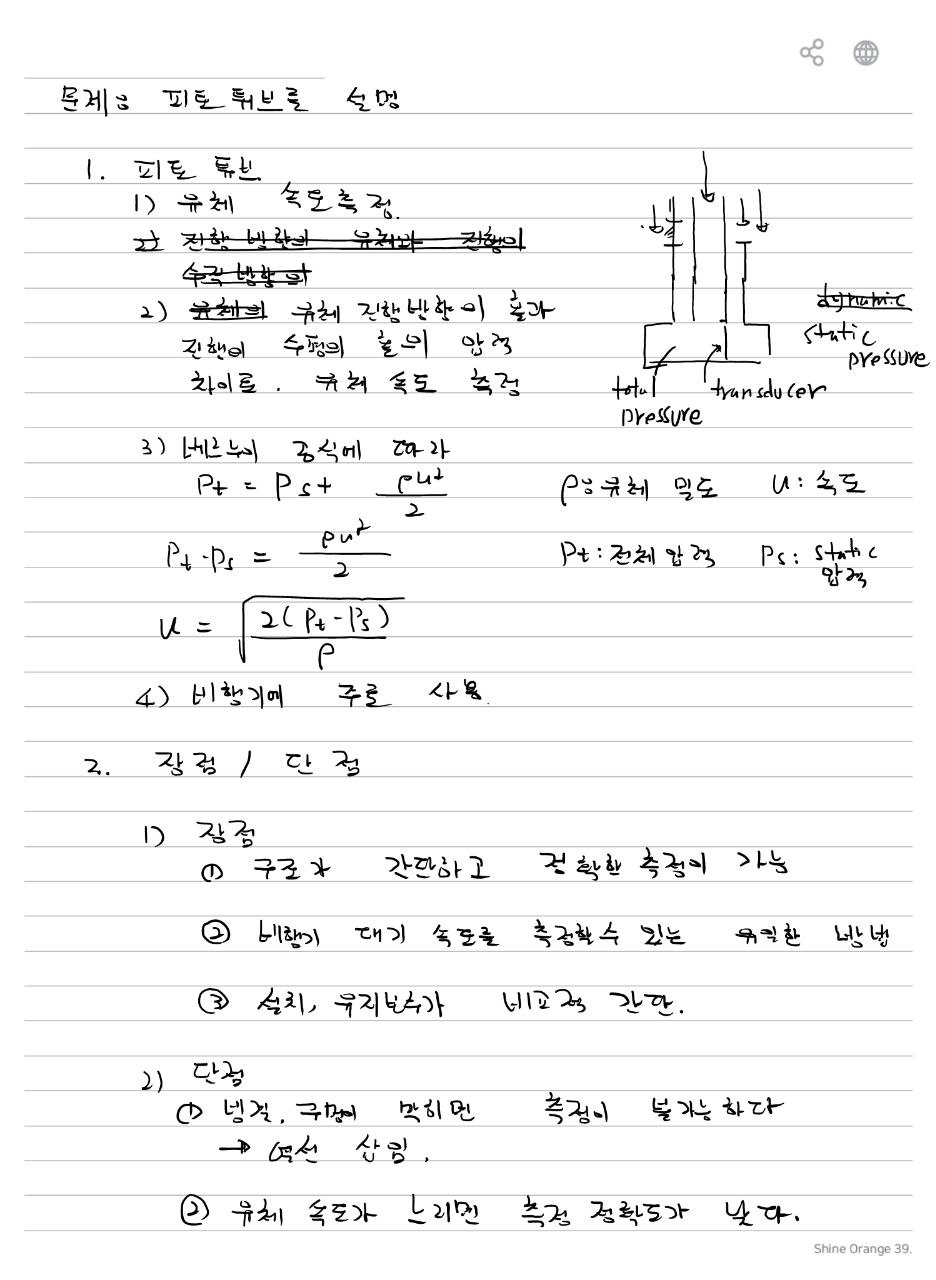 문제: 피토 튜브를 설명
1. 피토 튜브
1) 유체 속도측정.
2) 진행 방향의 유체와 진행의
수직 방향의
2) 유체의 유체 진행방향의 홀과
진행의 수평의 홀의 압력
차이로. 유체 속도 측정
dynamic
static
pressure
total
pressure
transducer
3) 베르누이 공식에 따라
Pt = Ps + ρu²/2
ρ: 유체 밀도 u: 속도
Pt - Ps = ρu²/2
Pt: 전체 압력 Ps: static
압력
u = √(2(Pt - Ps)/ρ)
4) 비행기에 주로 사용.
2. 장점 / 단점
1) 장점
① 구조가 간단하고 정확한 측정이 가능
② 비행기 대기 속도를 측정할 수 있는 유일한 방법
③ 설치, 유지보수가 비교적 간단.
2) 단점
① 빙결, 구멍이 막히면 측정이 불가능하다
→ 열선 삽입.
② 유체 속도가 느리면 측정 정확도가 낮다.
Shine Orange 39.